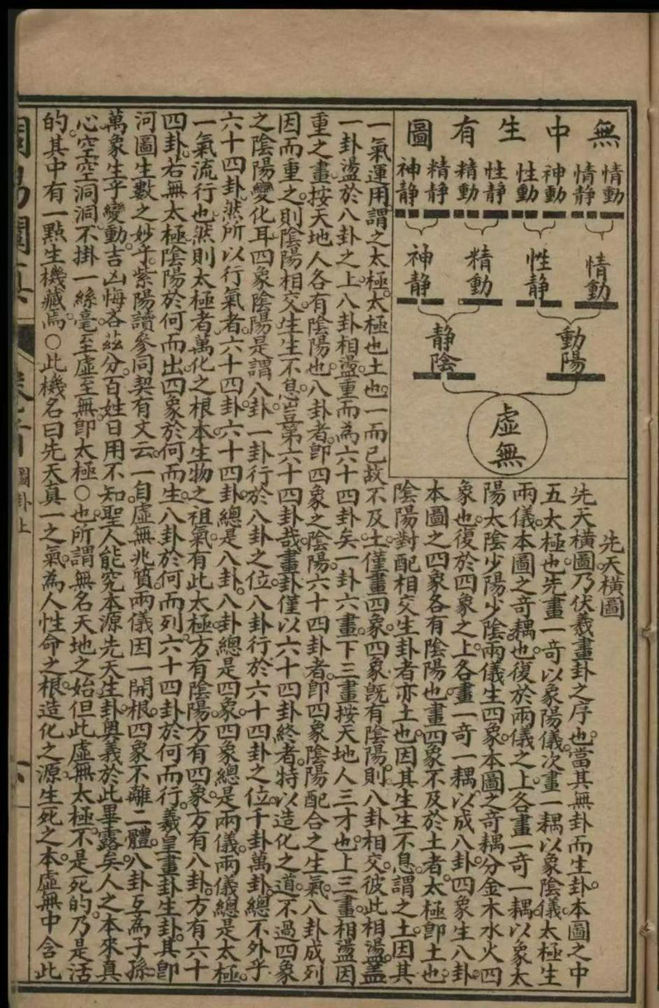 無中生有圖
情動 情静 神動 性動 性静 精動 精静 神静
情動 性静 精動 神静
動陽 静陰
虛無
先天橫圖
先天橫圖乃伏羲畫卦之序也。當其無卦而生卦。本圖之中
五太極也。先畫一奇以象陽儀。次畫一耦以象陰儀。太極生
兩儀。本圖之奇耦也。復於兩儀之上各畫一奇一耦以象太
陽太陰少陽少陰。兩儀生四象。本圖之奇耦分金木水火四
象也。復於四象之上各畫一奇一耦以成八卦。四象生八卦。
本圖之四象各有陰陽也。畫四象不及於土者。太極即土也。
陰陽對配相交生卦者亦土也。因其生生不息謂之土。因其
一氣運用謂之太極。太極也土也。一而已。故不及土。僅畫四象。四象旣有陰陽。則八卦相交。彼此相盪。蓋
一卦盪於八卦之上。八卦相盪。重而為六十四卦矣。一卦六畫。下三畫按天地人三才也。上三畫相盪因
重之畫。按天地人各有陰陽也。八卦者即四象之陰陽。六十四卦者即四象陰陽配合之生氣。八卦成列
因而重之。則陰陽相交。生生不息。豈第六十四卦哉。畫卦僅以六十四卦終者。特以造化之道不過四象
之陰陽變化耳。四象陰陽是謂八卦。一卦行於八卦之位。八卦行於六十四卦之位。千卦萬卦總不外乎
六十四卦。然所以行氣者。六十四卦。六十四卦總是八卦。八卦總是四象。四象總是兩儀。兩儀總是太極。
一氣流行也。然則太極者萬化之根本。生物之祖氣。有此太極方有陰陽。方有四象。方有八卦。方有六十
四卦。若無太極。陰陽於何而出。四象於何而生。八卦於何而列。六十四卦於何而行。羲皇畫卦生卦。其即
河圖生數之妙乎。紫陽讀參同契有文云。一自虛無兆質。兩儀因一開根。四象不離二體。八卦互為子孫。
萬象生乎變動。吉凶悔吝茲分。百姓日用不知。聖人能究本源。先天生卦奧義於此畢露矣。人之本來真
心空空洞洞。不掛一絲毫。至虛至無。即太極〇也。所謂無名天地之始。但此虛無太極不是死的。乃是活
的。其中有一點生機藏焉。〇此機名曰先天真一之氣。為人性命之根。造化之源。生死之本。虛無中含此